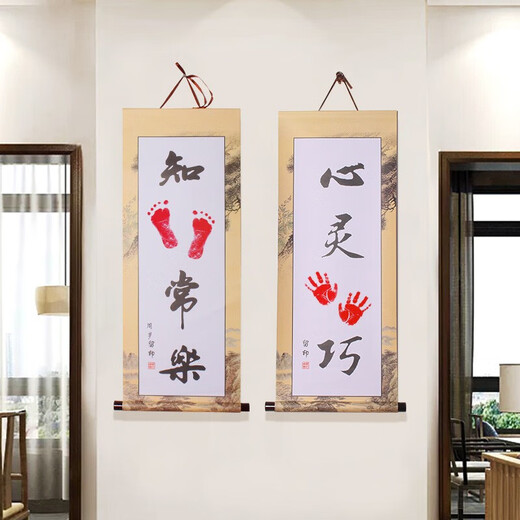 知
常
樂
周岁留印
心
灵
巧
留印